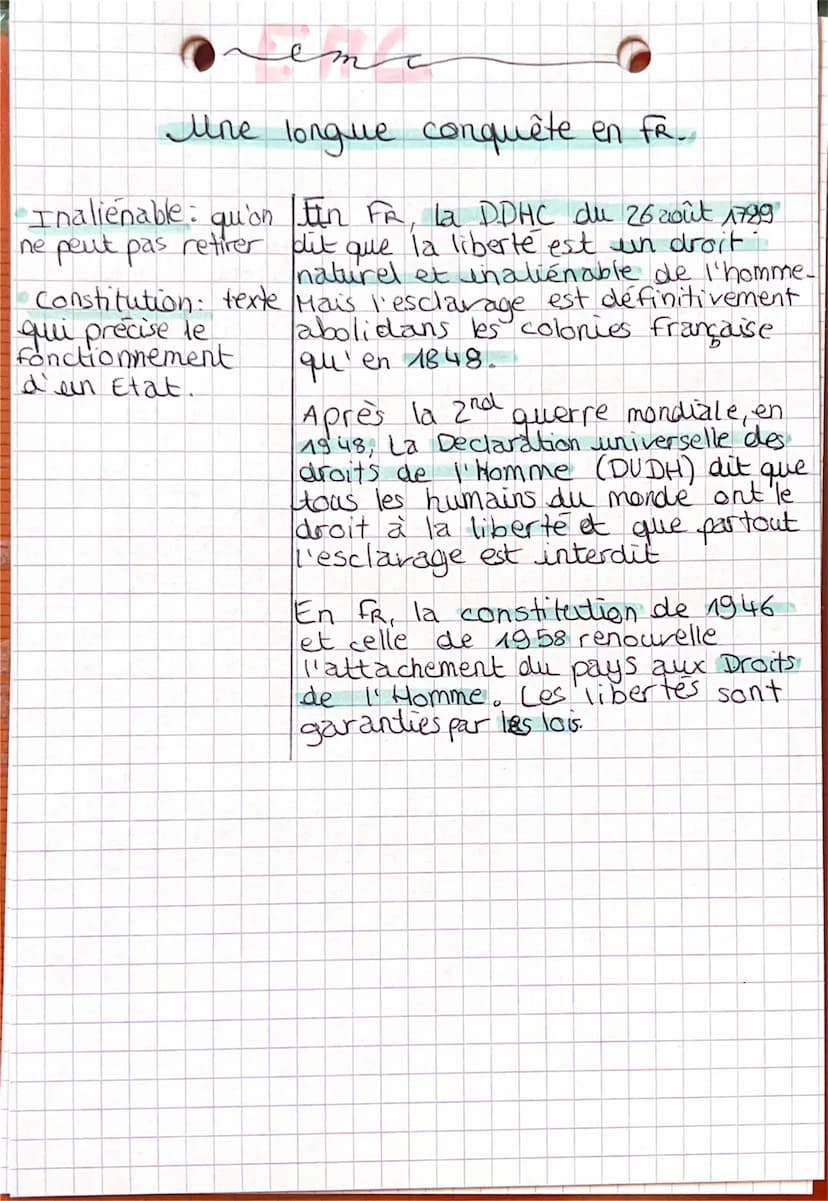 EMC
emc
Une longue conquête en FR.
Inaliénable: qu'on
ne peut pas retirer
Constitution: texte
qui précise le
fonctionnement
d'un Etat.
En FR, la DDHC du 26 août 1799
dit que la liberté est un droit
naturel et inaliénable de l'homme.
Mais l'esclavage est définitivement
aboli dans les colonies française
qu'en 1848.
Après la 2nd guerre mondiale, en
1948, La Declaration universelle des
droits de l'Homme (DUDH) dit que
tous les humains du monde ont le
droit à la liberté et que partout
l'esclavage est interdit
En FR, la constitution de 1946
et celle de 1958 renouvelle
l'attachement du pays aux Droits
de l'Homme. Les libertés sont
garanties par les lois.